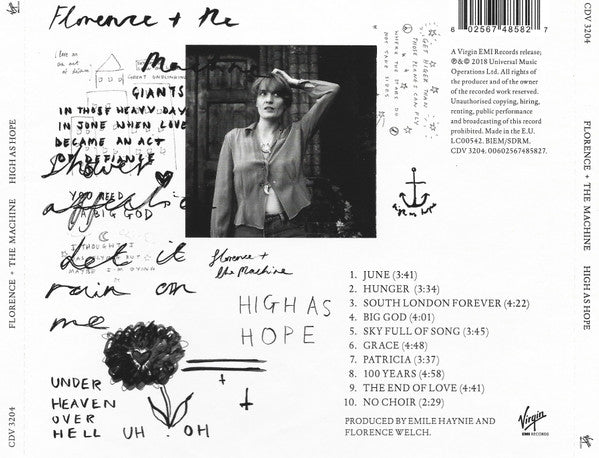 CDV 3204
FLORENCE + THE MACHINE
HIGH AS HOPE
Florence + The
I live on
an act
of
GREAT UNBLINKING
GIANTS
IN THOSE HEAVY DAYS
IN JUNE WHEN LOVE
BECAME AN ACT
OF DEFIANCE
Shower
YOU NEED
A BIG GOD
affection
I THOUGHT I
MAYBE I'M DYING
Let it
rain on
me
GET BIGGER THAN
THOSE PLANES CAN FLY
WHERE THE STARS DO
NOT TAKE SIDES
florence +
the Machine
HIGH AS
HOPE
UNDER
HEAVEN
OVER
HELL
UH . OH
6 02567 48582 7
A Virgin EMI Records release;
℗&© 2018 Universal Music
Operations Ltd. All rights of
the producer and of the owner
of the recorded work reserved.
Unauthorised copying, hiring,
renting, public performance
and broadcasting of this record
prohibited. Made in the E.U.
LC00542. BIEM/SDRM.
CDV 3204. 00602567485827.
1. JUNE (3:41)
2. HUNGER (3:34)
3. SOUTH LONDON FOREVER (4:22)
4. BIG GOD (4:01)
5. SKY FULL OF SONG (3:45)
6. GRACE (4:48)
7. PATRICIA (3:37)
8. 100 YEARS (4:58)
9. THE END OF LOVE (4:41)
10. NO CHOIR (2:29)
PRODUCED BY EMILE HAYNIE AND
FLORENCE WELCH.
Virgin
EMI RECORDS
CDV 3204
FLORENCE + THE MACHINE
HIGH AS HOPE